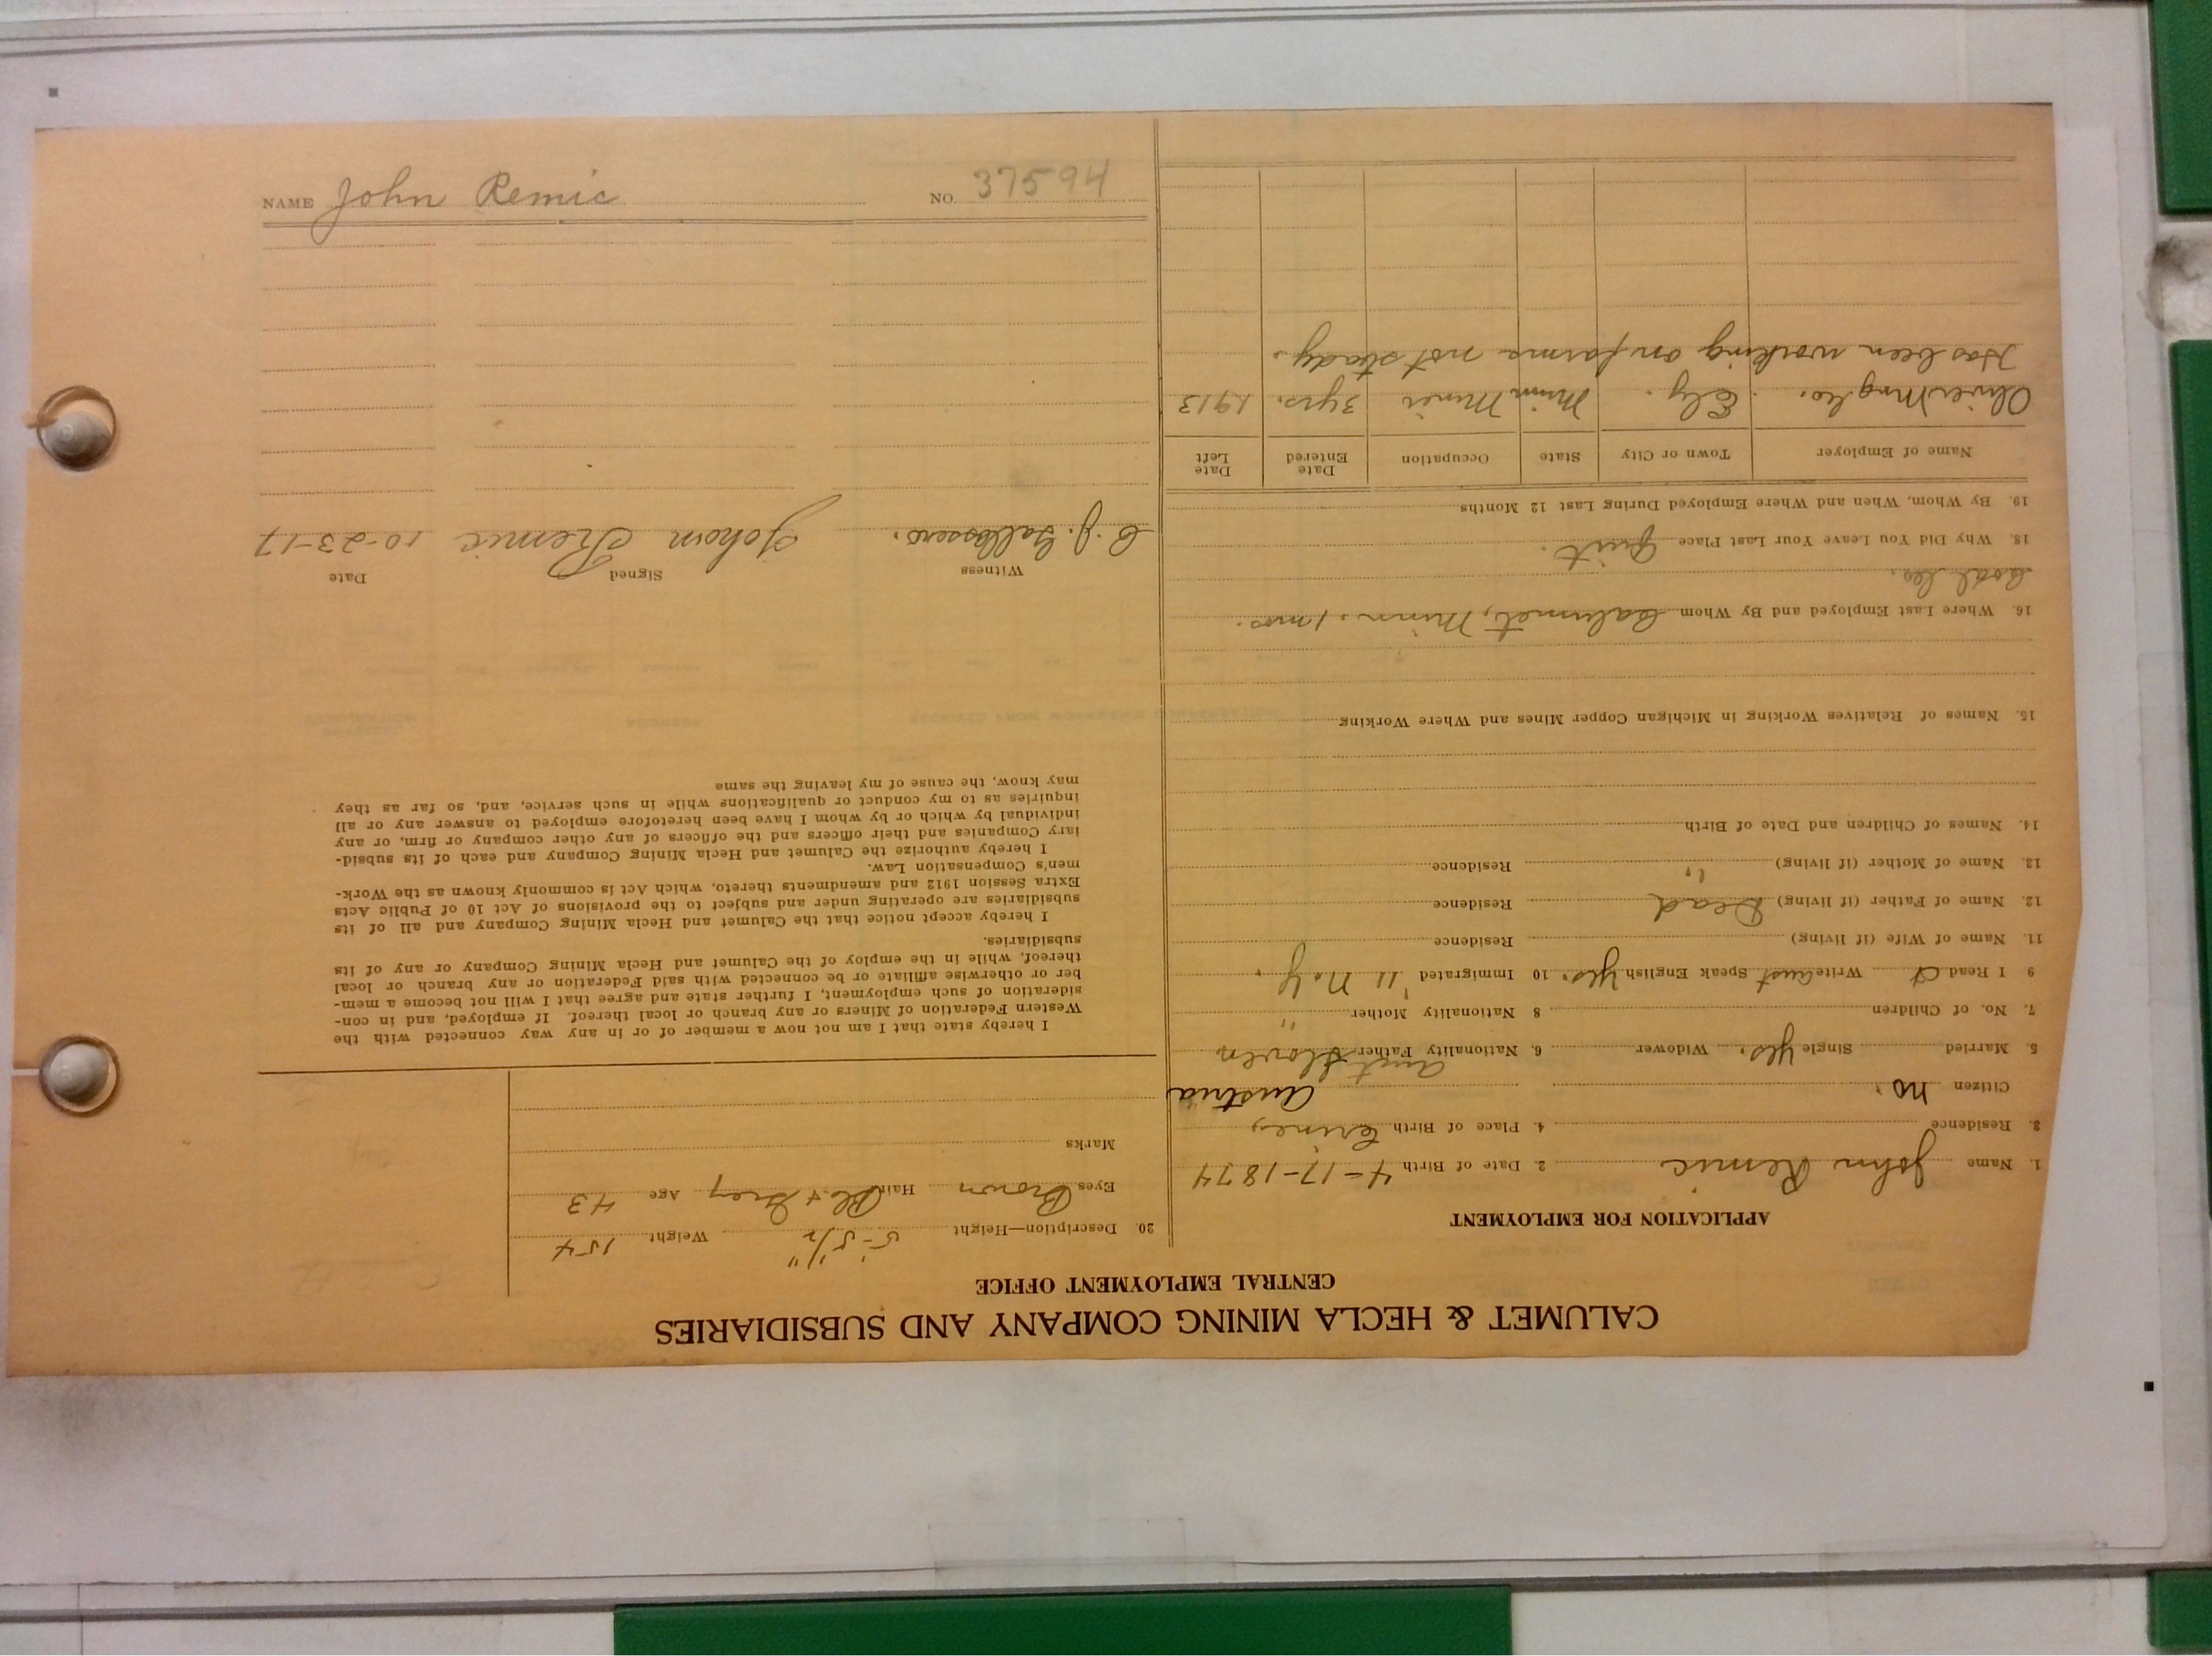 CALUMET & HECLA MINING COMPANY AND SUBSIDIARIES
CENTRAL EMPLOYMENT OFFICE
APPLICATION FOR EMPLOYMENT
1. Name John Remic 2. Date of Birth 4-17-1874
3. Residence 4. Place of Birth
Citizen no. Austria
5. Married Single Yes. Widower 6. Nationality Father Aust Sloven
7. No. of Children 8 Nationality Mother "
9 I Read & Write Aust Speak English Yes. 10 Immigrated 11 N.Y.
11. Name of Wife (if living) Residence
12. Name of Father (if living) Dead Residence
13. Name of Mother (if living) " Residence
14. Names of Children and Date of Birth
15. Names of Relatives Working in Michigan Copper Mines and Where Working
16. Where Last Employed and By Whom Calumet, Minn. 1 mos.
Coal Co.
18. Why Did You Leave Your Last Place Quit.
19. By Whom, When and Where Employed During Last 12 Months
Name of Employer Town or City State Occupation Date Entered Date Left
Oliver Mng Co. Ely. Minn Miner 3 yrs. 1913
Has been working on farms not steady.
20. Description—Height 5'-5 1/2" Weight 154
Eyes Brown Hair Bl. & Grey Age 43
Marks
I hereby state that I am not now a member of or in any way connected with the
Western Federation of Miners or any branch or local thereof. If employed, and in con-
sideration of such employment, I further state and agree that I will not become a mem-
ber or otherwise affiliate or be connected with said Federation or any branch or local
thereof, while in the employ of the Calumet and Hecla Mining Company or any of its
subsidiaries.
I hereby accept notice that the Calumet and Hecla Mining Company and all of its
subsidiaries are operating under and subject to the provisions of Act 10 of Public Acts
Extra Session 1912 and amendments thereto, which Act is commonly known as the Work-
men's Compensation Law.
I hereby authorize the Calumet and Hecla Mining Company and each of its subsid-
iary Companies and their officers and the officers of any other company or firm, or any
individual by which or by whom I have been heretofore employed to answer any or all
inquiries as to my conduct or qualifications while in such service, and, so far as they
may know, the cause of my leaving the same
Witness Signed Date
C. J. Johan Remic 10-23-17
NAME John Remic NO. 37594